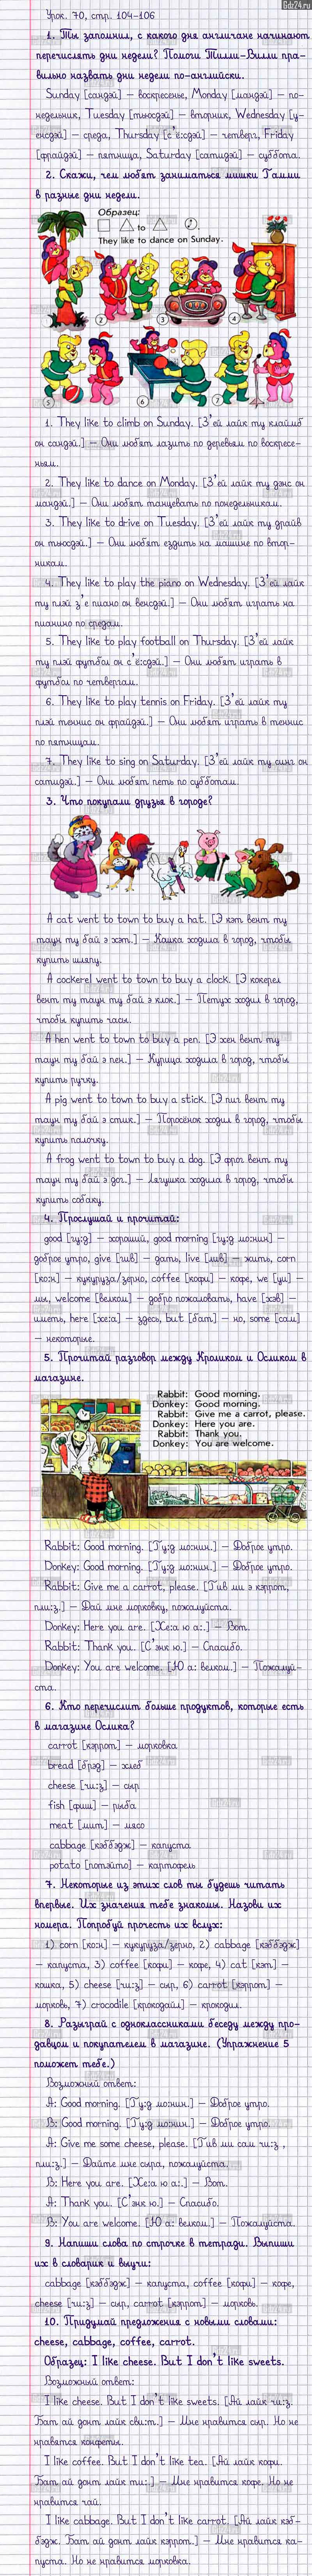 Gdz24.ru
Урок. 70, стр. 104-106
1. Ты запомнил, с какого дня англичане начинают
перечислять дни недели? Помоги Тилли-Вилли пра-
вильно назвать дни недели по-английски.
Sunday [сандэй] – воскресенье, Monday [мандэй] – по-
недельник, Tuesday [тьюсдэй] – вторник, Wednesday [у-
енсдэй] – среда, Thursday [с'ё:сдэй] – четверг, Friday
[фрайдэй] – пятница, Saturday [сатидэй] – суббота.
2. Скажи, чем любят заниматься мишки Гамми
в разные дни недели.
Образец:
to
They like to dance on Sunday.
2
3
4
5
6
7
1. They like to climb on Sunday. [З'ей лайк ту клаймб
он сандэй.] – Они любят лазить по деревьям по воскресе-
ньям.
2. They like to dance on Monday. [З'ей лайк ту дэнс он
мандэй.] – Они любят танцевать по понедельникам.
3. They like to drive on Tuesday. [З'ей лайк ту драйв
он тьюсдэй.] – Они любят ездить на машине по втор-
никам.
4. They like to play the piano on Wednesday. [З'ей лайк
ту плэй з'е пиано он венсдэй.] – Они любят играть на
пианино по средам.
5. They like to play football on Thursday. [З'ей лайк
ту плэй футбол он с'ё:сдэй.] – Они любят играть в
футбол по четвергам.
6. They like to play tennis on Friday. [З'ей лайк ту
плэй теннис он фрайдэй.] – Они любят играть в теннис
по пятницам.
7. They like to sing on Saturday. [З'ей лайк ту синг он
сатидэй.] – Они любят петь по субботам.
3. Что покупали друзья в городе?
A cat went to town to buy a hat. [Э кэт вент ту
таун ту бай э хэт.] – Кошка ходила в город, чтобы
купить шляпу.
A cockerel went to town to buy a clock. [Э кокерел
вент ту таун ту бай э клок.] – Петух ходил в город,
чтобы купить часы.
A hen went to town to buy a pen. [Э хен вент ту
таун ту бай э пен.] – Курица ходила в город, чтобы
купить ручку.
A pig went to town to buy a stick. [Э пиг вент ту
таун ту бай э стик.] – Поросёнок ходил в город, чтобы
купить палочку.
A frog went to town to buy a dog. [Э фрог вент ту
таун ту бай э дог.] – Лягушка ходила в город, чтобы
купить собаку.
4. Прослушай и прочитай:
good [гу:д] – хороший, good morning [гу:д мо:нин] –
доброе утро, give [гив] – дать, live [лив] – жить, corn
[ко:н] – кукуруза/зерно, coffee [кофи] – кофе, we [уи] –
мы, welcome [велком] – добро пожаловать, have [хэв] –
иметь, here [хе:а] – здесь, but [бат] – но, some [сам]
– некоторые.
5. Прочитай разговор между Кроликом и Осликом в
магазине.
Rabbit: Good morning.
Donkey: Good morning.
Rabbit: Give me a carrot, please.
Donkey: Here you are.
Rabbit: Thank you.
Donkey: You are welcome.
Rabbit: Good morning. [Гу:д мо:нин.] – Доброе утро.
Donkey: Good morning. [Гу:д мо:нин.] – Доброе утро.
Rabbit: Give me a carrot, please. [Гив ми э кэррот,
пли:з.] – Дай мне морковку, пожалуйста.
Donkey: Here you are. [Хе:а ю а:.] – Вот.
Rabbit: Thank you. [С'энк ю.] – Спасибо.
Donkey: You are welcome. [Ю а: велком.] – Пожалуй-
ста.
6. Кто перечислит больше продуктов, которые есть
в магазине Ослика?
carrot [кэррот] – морковка
bread [брэд] – хлеб
cheese [чи:з] – сыр
fish [фиш] – рыба
meat [мит] – мясо
cabbage [кэббэдж] – капуста
potato [потэйто] – картофель
7. Некоторые из этих слов ты будешь читать
впервые. Их значения тебе знакомы. Назови их
номера. Попробуй прочесть их вслух:
1) corn [ко:н] – кукуруза/зерно, 2) cabbage [кэббэдж]
– капуста, 3) coffee [кофи] – кофе, 4) cat [кэт] –
кошка, 5) cheese [чи:з] – сыр, 6) carrot [кэррот] –
морковь, 7) crocodile [крокодайл] – крокодил.
8. Разыграй с одноклассниками беседу между про-
давцом и покупателем в магазине. (Упражнение 5
поможет тебе.)
Возможный ответ:
A: Good morning. [Гу:д мо:нин.] – Доброе утро.
B: Good morning. [Гу:д мо:нин.] – Доброе утро.
A: Give me some cheese, please. [Гив ми сам чи:з ,
пли:з.] – Дайте мне сыра, пожалуйста.
B: Here you are. [Хе:а ю а:.] – Вот.
A: Thank you. [С'энк ю.] – Спасибо.
B: You are welcome. [Ю а: велком.] – Пожалуйста.
9. Напиши слова по строчке в тетради. Выпиши
их в словарик и выучи:
cabbage [кэббэдж] – капуста, coffee [кофи] – кофе,
cheese [чи:з] – сыр, carrot [кэррот] – морковь.
10. Придумай предложения с новыми словами:
cheese, cabbage, coffee, carrot.
Образец: I like cheese. But I don't like sweets.
Возможный ответ:
I like cheese. But I don't like sweets. [Ай лайк чи:з.
Бат ай донт лайк сви:т.] – Мне нравится сыр. Но не
нравятся конфеты.
I like coffee. But I don't like tea. [Ай лайк кофи.
Бат ай донт лайк ти:.] – Мне нравится кофе. Но не
нравится чай.
I like cabbage. But I don't like carrot. [Ай лайк кэб-
бэдж. Бат ай донт лайк кэррот.] – Мне нравится ка-
пуста. Но не нравится морковка.